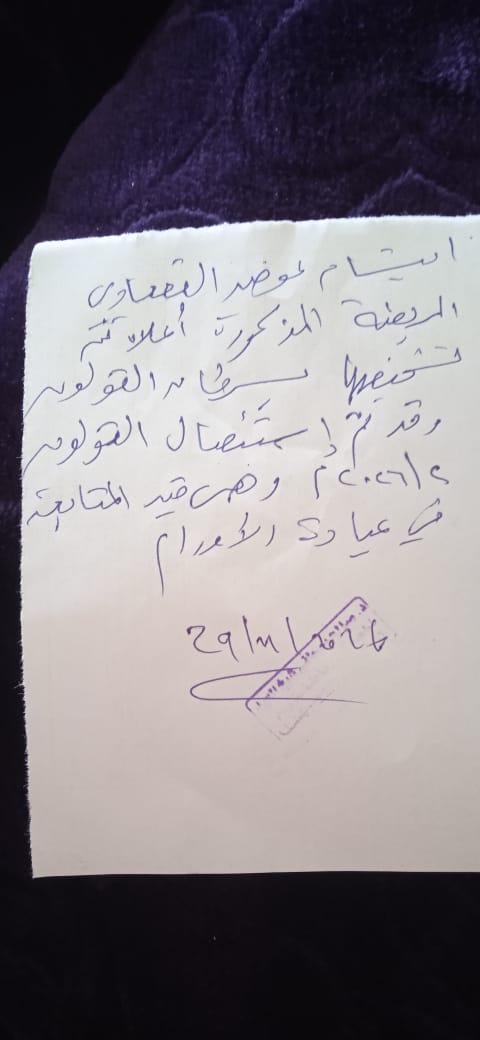 ابتسام عوض القعاوي
المريضة المذكورة أعلاه تم
تشخيصها بسرطان القولون
وقد تم إستئصال القولون
٢٠٢٦/٢م وهي قيد المتابعة
في عيادة الأورام